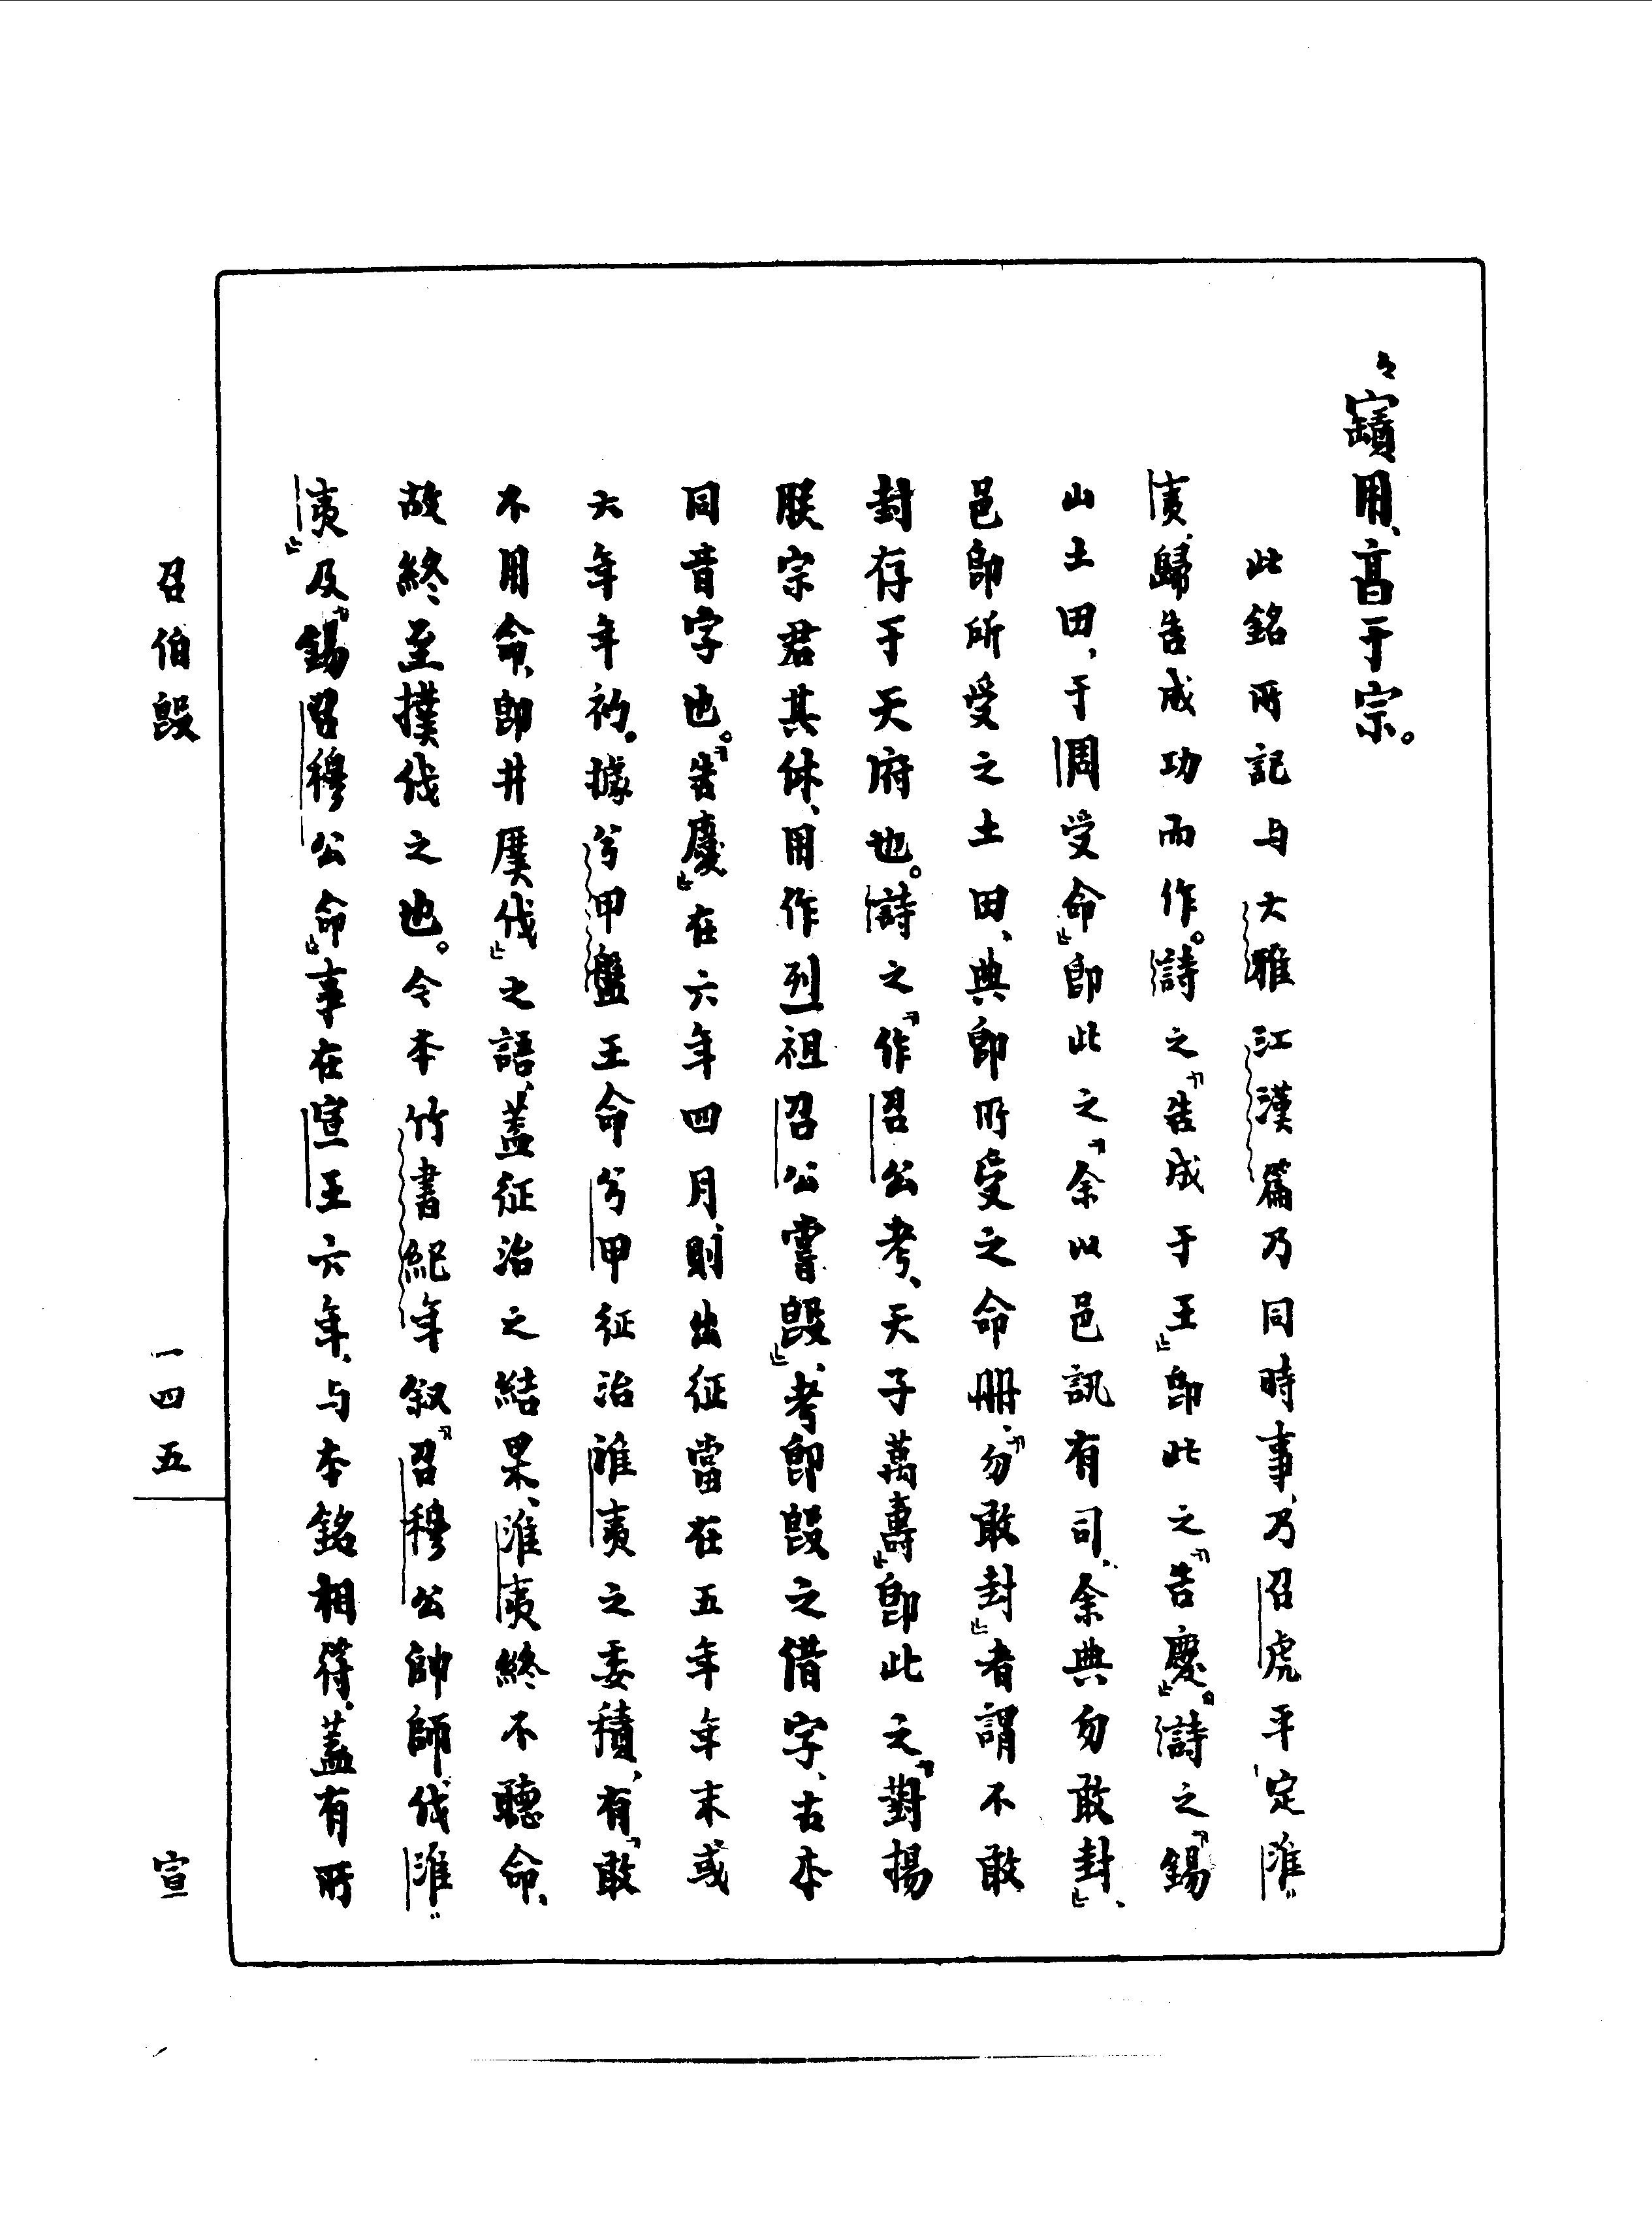 々寶用、亯于宗。
此銘所記与大雅江漢篇乃同時事、乃召虎平定淮
夷、歸告成功而作。詩之「告成于王」即此之「告慶」。詩之「錫
山土田、于周受命」即此之「余以邑訊有司、余典勿敢封」、
邑即所受之土田、典即所受之命册、「勿敢封」者謂不敢
封存于天府也。詩之「作召公考、天子萬壽」即此之「對揚
朕宗君其休、用作列祖召公嘗𣪘」、考即𣪘之借字、古本
同音字也。「告慶」在六年四月、則出征當在五年年末或
六年年初。據兮甲盤王命兮甲征治淮夷之委積、有「敢
不用命、即井𢦏伐」之語、蓋征治之結果、淮夷終不聽命、
故終至撲伐之也。今本竹書紀年叙「召穆公帥師伐淮
夷」及「錫召穆公命」事在宣王六年、与本銘相符、蓋有所
召伯𣪘
一四五
宣